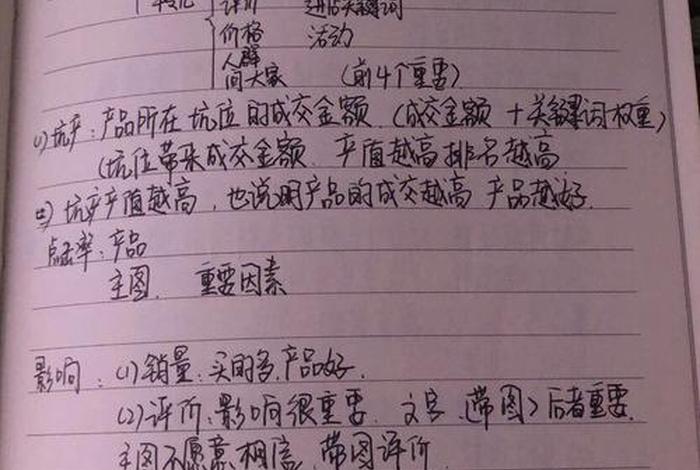 转化 评价 进店关键词
价格 活动
人群
问大家 (前4个重要)
(1)坑产:产品所在坑位的成交金额.(成交金额+关键词权重)
(坑位带来成交金额.产值越高排名越高
(二)坑产产值越高,也说明产品的成交越高 产品越好.
点击率:产品
主图. 重要因素
影响:(1)销量:买的多,产品好.
(2)评价:影响很重要. 文字 (带图)后者重要.
主图不愿意相信,带图评价